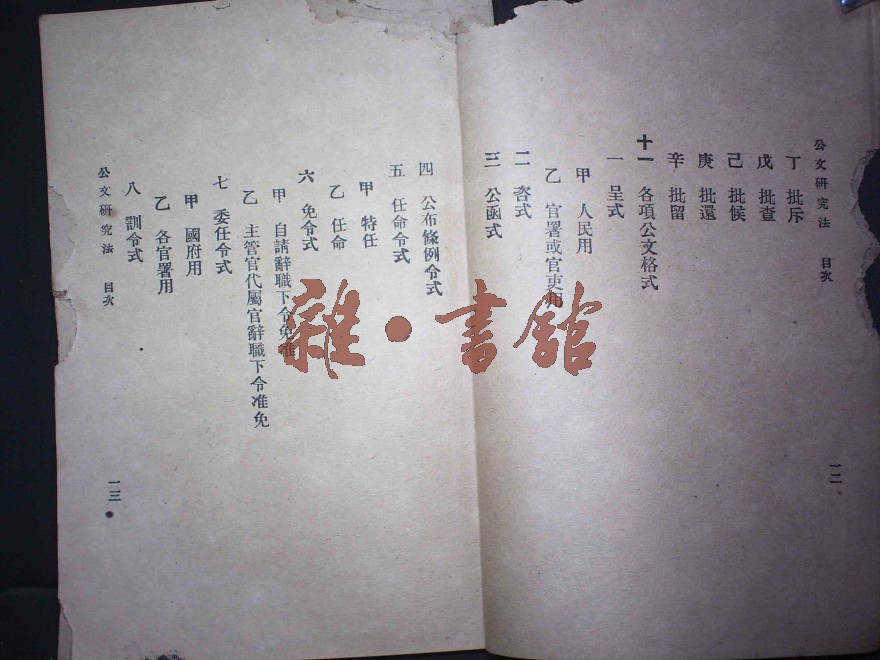 公文研究法 目次
丁 批斥
戊 批查
己 批候
庚 批還
辛 批留
十一 各項公文格式
一 呈式
甲 人民用
乙 官署或官吏用
二 咨式
三 公函式
一二
四 公布條例令式
五 任命令式
甲 特任
乙 任命
六 免令式
甲 自請辭職下令免准
乙 主管官代屬官辭職下令准免
七 委任令式
甲 國府用
乙 各官署用
八 訓令式
公文研究法 目次
一三
雜·書館